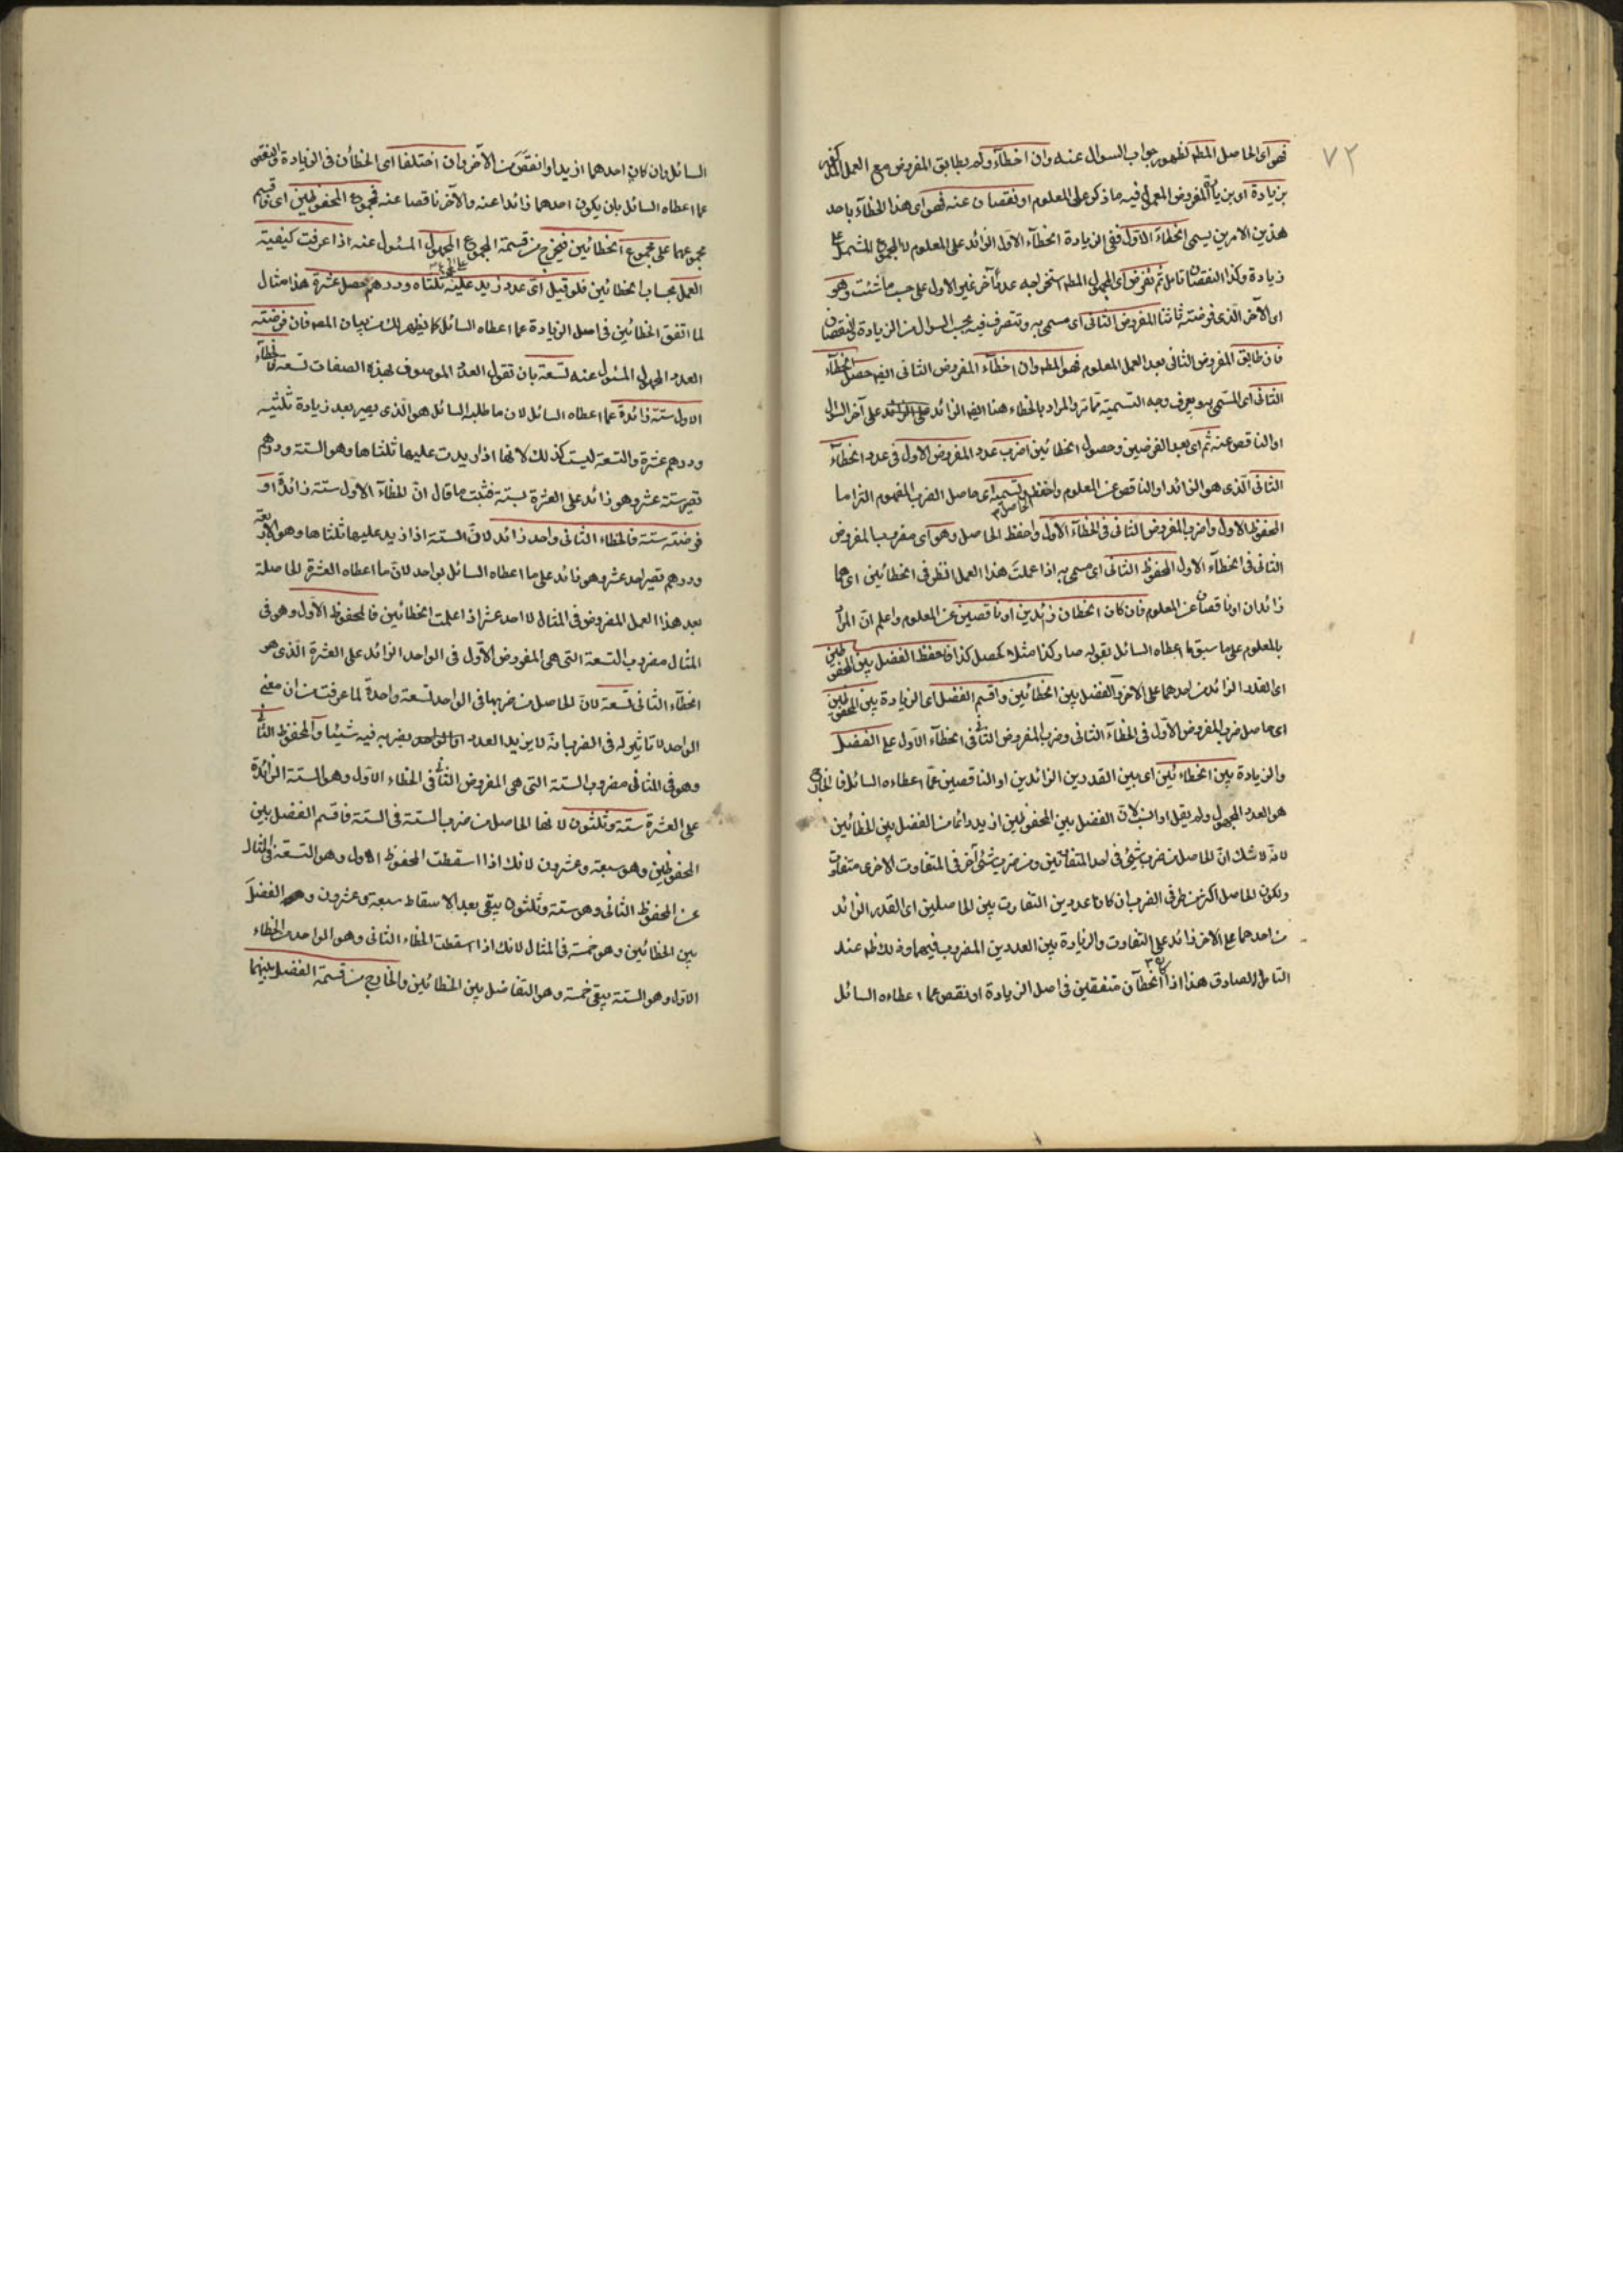 ٧٢
فهو اى الحاصل المط لظهور جواب السوال عنه وان اخطأ ولم يطابق المفروض مع العمل
بزيادة اى بزيادة المفروض المعمول فيه ما ذكر على المعلوم او نقصان عنه فهو اى هذا الخطاء باحد
هذين الامرين يسمى الخطاء الاول ففى الزيادة الخطاء الاول الزائد على المعلوم لا المجموع المشتمل على
زيادة وكذا النقصان تامل ثم نفرض اى المجهول المط استخراجه عددا آخر غير الاول على حسب ما شئت وهو
اى الآخر الذى فرضته ثانيا المفروض الثانى اى مسمى به وتتصرف فيه بحسب السوال من الزيادة والنقصان
فان طابق المفروض الثانى بعد العمل المعلوم فهو المط وان اخطاء المفروض الثانى ايضا حصل الخطاء
الثانى اى المسمى به ويعرف وجه التسمية مما مر والمراد بالخطاء هنا ايضا الزائد على آخر السؤال
او الناقص عنه ثم اى بعد الفرضين وحصول الخطائين اضرب عدد المفروض الاول فى عدد الخطاء
الثانى الذى هو الزائد او الناقص عن المعلوم واحفظ الحاصل وتسميه اى حاصل الضرب المفهوم التزاما
المحفوظ الاول واضرب المفروض الثانى فى الخطاء الاول واحفظ الحاصل وهو اى مضروب المفروض
الثانى فى الخطاء الاول المحفوظ الثانى اى مسمى به اذا عملت هذا العمل انظر فى الخطائين اى هما
زائدان او ناقصان عن المعلوم فان كان الخطان زائدين او ناقصين عن المعلوم واعلم ان المراد
بالمعلوم على ما سبق ما اعطاه السائل بقوله صار كذا مثلا يحصل كذا فاحفظ الفضل بين المحفوظين
اى القدر الزائد من احدهما على الآخر والفضل بين الخطائين واقسم الفضل اى الزيادة بين المحفوظين
اى حاصل ضرب المفروض الاول فى الخطاء الثانى وضرب المفروض الثانى فى الخطاء الاول على الفضل
والزيادة بين الخطائين اى بين القدرين الزائدين او الناقصين عما اعطاه السائل فالخارج
هو العدد المجهول ولم يقل او انسب لان الفضل بين المحفوظين ازيد دائما من الفضل بين الخطائين
لانه لا شك ان الحاصل من ضرب شئ فى احد المتفاوتين ومن ضرب شئ آخر فى المتفاوت الاخرى متفاوت
ولكون الحاصل اكثر من طرفى الضرب ان كانا عددين التفاوت بين الحاصلين اى القدر الزائد
من احدهما على الآخر زائد على التفاوت والزيادة بين العددين المضروب فيهما وذلك ظ عند
التامل الصادق هذا اذا كان الخطآن متفقين فى اصل الزيادة او نقص عما اعطاه السائل
السائل وان كان احدهما ازيد او انقص من الآخر وان اختلفا اى الخطأن فى الزيادة والنقص
عما اعطاه السائل بان يكون احدهما زائدا عنه والآخر ناقصا عنه فمجموع المحفوظين اى قسم
مجموعهما على مجموع الخطائين فيخرج من قسمة المجموع على المجموع المجهول المسئول عنه اذا عرفت كيفية
العمل بحساب الخطائين فلو قيل اى عدد زيد عليه ثلثاه ودرهم حصل عشرة هذا مثال
لما اتفق الخطائين فى اصل الزيادة عما اعطاه السائل كما يظهر لك من بيان المص فان فرضته
العدد المجهول المسئول عنه تسعة بان تقول العدد الموصوف بهذه الصفات تسعة فالخطاء
الاول ستة زائدة عما اعطاه السائل لان ما طلبه السائل هو الذى يصير بعد زيادة ثلثيه
ودرهم عشرة والتسعة ليست كذلك لانها اذا زيدت عليها ثلثاها وهو الستة ودرهم
تصير ستة عشر وهو زائد على العشرة بستة فثبت ما قال ان الخطاء الاول ستة زائدة او
فرضته ستة فالخطاء الثانى واحد زائد لان الستة اذا زيد عليها ثلثاها وهو الاربعة
ودرهم تصير احد عشر وهو زائد على ما اعطاه السائل بواحد لان ما اعطاه العشرة الحاصلة
بعد هذا العمل المفروض فى المثال لا احد عشر اذا علمت الخطائين فالمحفوظ الاول وهو فى
المثال مضروب التسعة التى هى المفروض الاول فى الواحد الزائد على العشرة الذى هو
الخطاء الثانى تسعة لان الحاصل من ضربها فى الواحد تسعة واحدة لما عرفت من ان معنى
الواحد لا تاثير له فى الضرب انه لا يزيد العدد بضربه فيه شيئا والمحفوظ الثانى
وهو فى المثال مضروب الستة التى هى المفروض الثانى فى الخطاء الاول وهو الستة الزائدة
على العشرة ستة وثلثون لانها الحاصل من ضرب الستة فى الستة فاقسم الفضل بين
المحفوظين وهو سبعة وعشرون لانك اذا اسقطت المحفوظ الاول وهو التسعة فى المثال
عن المحفوظ الثانى وهو ستة وثلثون يبقى بعد الاسقاط سبعة وعشرون وهو الفضل
بين الخطائين وهو خمسة فى المثال لانك اذا اسقطت الخطاء الثانى وهو الواحد من الخطاء
الاول وهو الستة يبقى خمسة وهو التفاضل بين الخطائين والخارج من قسمة الفضل بينهما